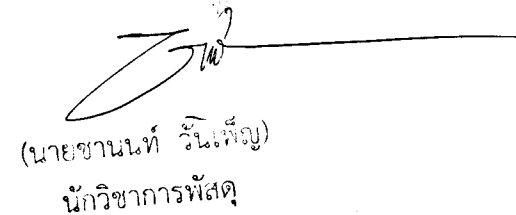 (นายชานนท์ วันเพ็ญ)
นักวิชาการพัสดุ